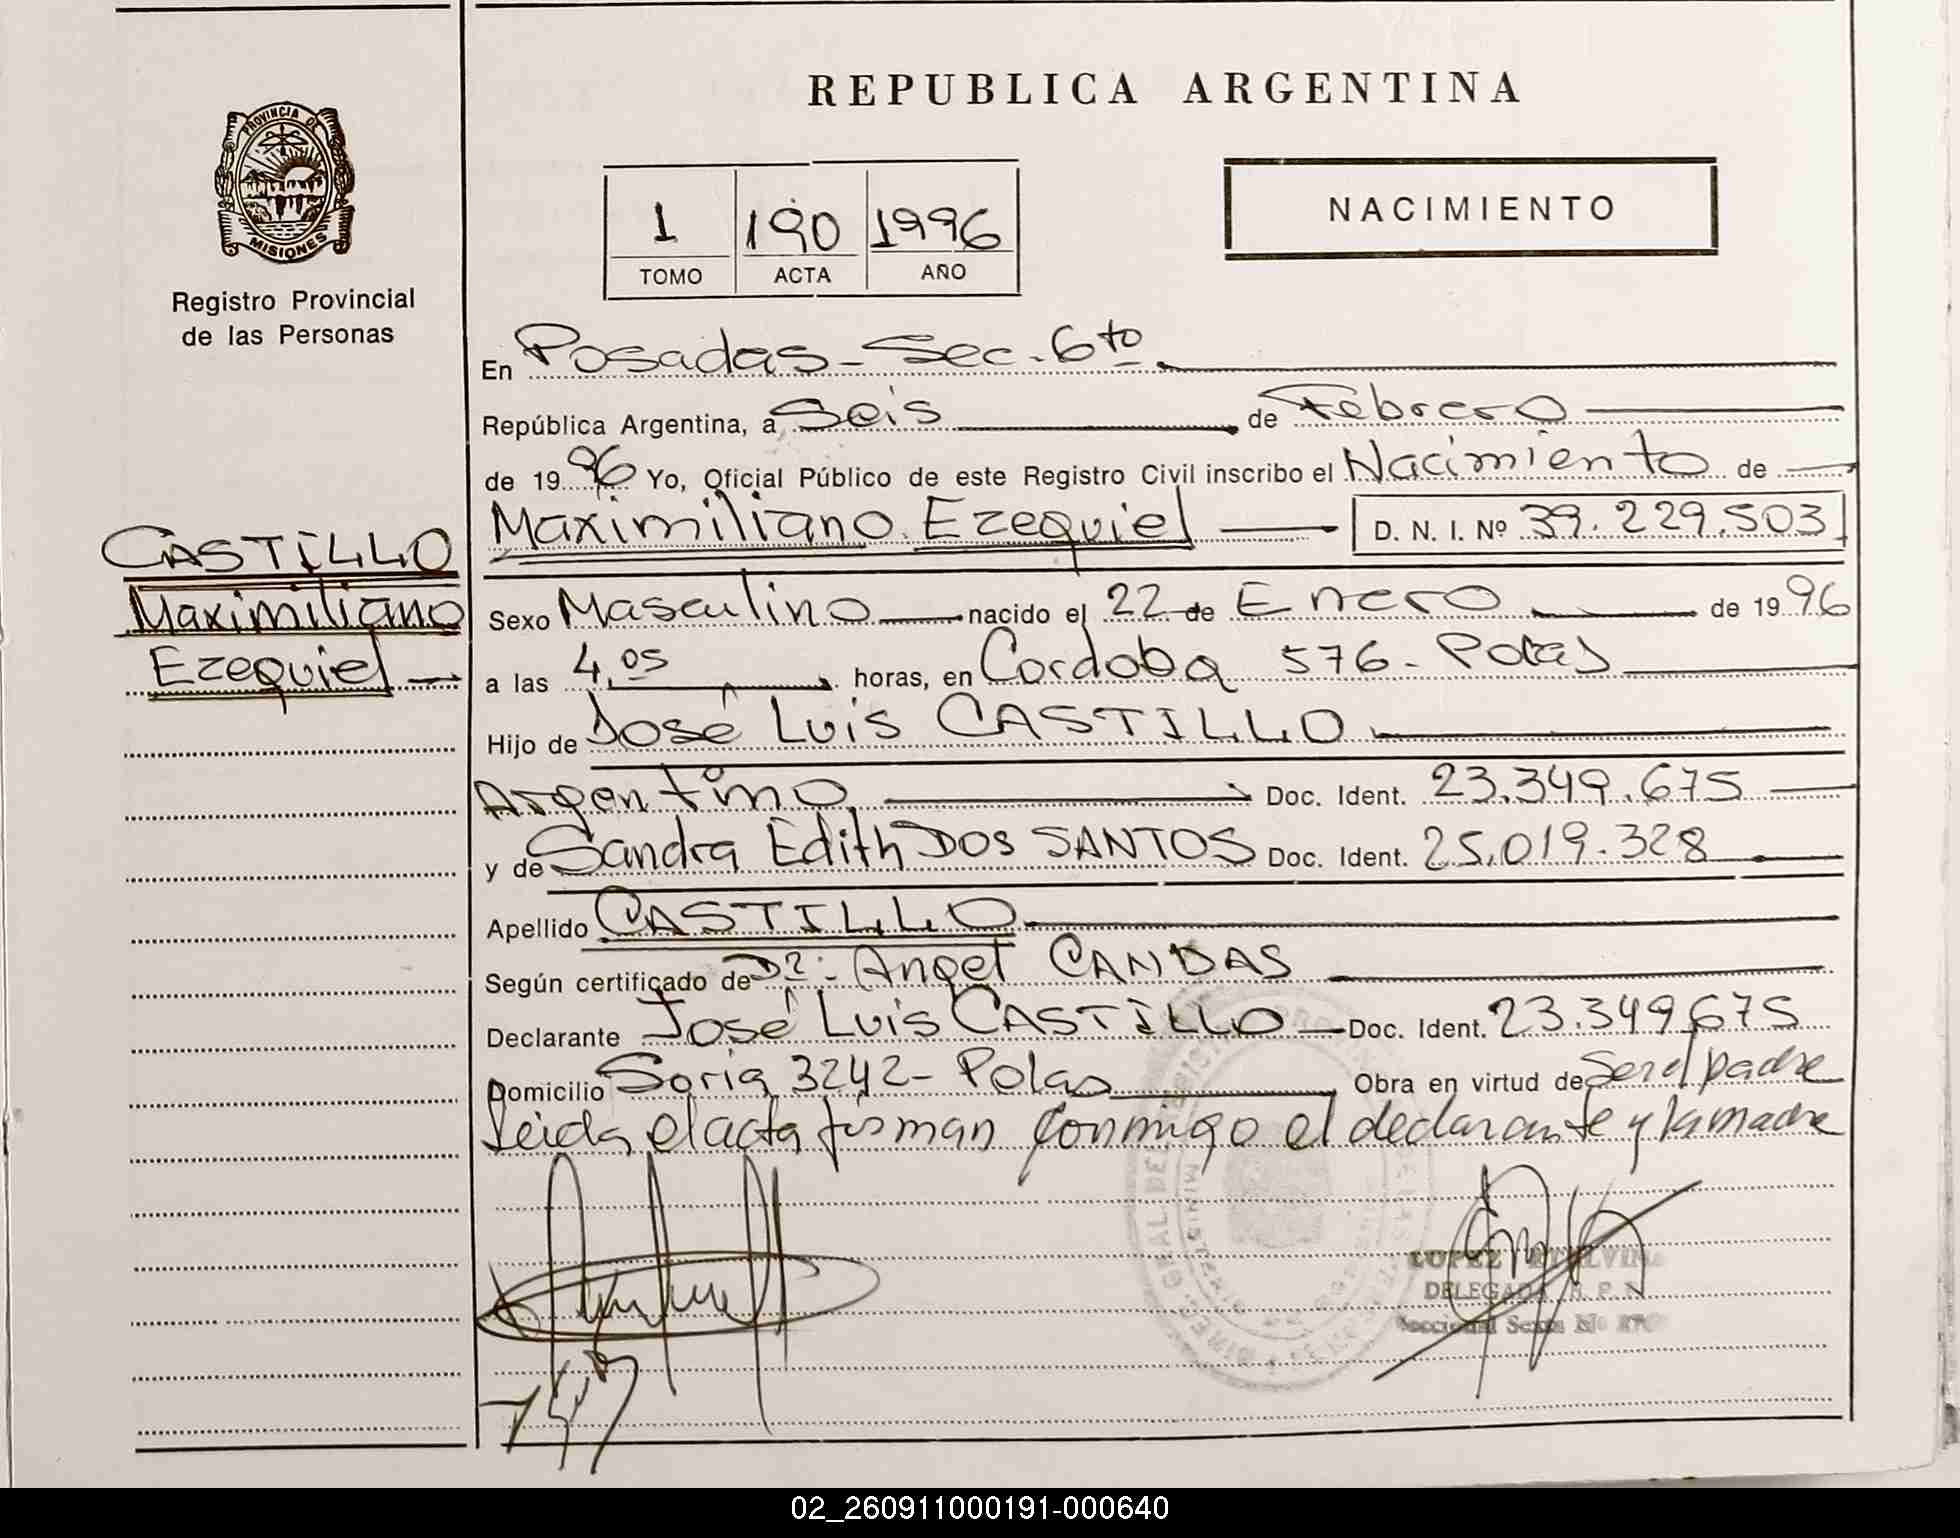 REPUBLICA ARGENTINA
PROVINCIA DE
MISIONES
Registro Provincial
de las Personas
1 190 1996
TOMO ACTA AÑO
NACIMIENTO
En Posadas - Sec. 6to
República Argentina, a Seis de Febrero
de 1996 Yo, Oficial Público de este Registro Civil inscribo el Nacimiento de
Maximiliano Ezequiel D. N. I. Nº 39.229.503
CASTILLO
Maximiliano
Ezequiel
Sexo Masculino nacido el 22 de Enero de 1996
a las 4,05 horas, en Cordoba 576 - Pdas
Hijo de José Luis CASTILLO
Argentino Doc. Ident. 23.349.675
y de Sandra Edith DOS SANTOS Doc. Ident. 25.019.328
Apellido CASTILLO
Según certificado de Dr. Angel CANDAS
Declarante José Luis CASTILLO Doc. Ident. 23.349675
Domicilio Soria 3242 - Pdas Obra en virtud de ser el padre
Leida el acta firman conmigo el declarante y la madre
LOPEZ
DELEGADA R. P. P.
Seccional Sexta
02_260911000191-000640